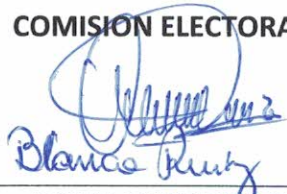 COMISION ELECTORA
Blanca Ruiz